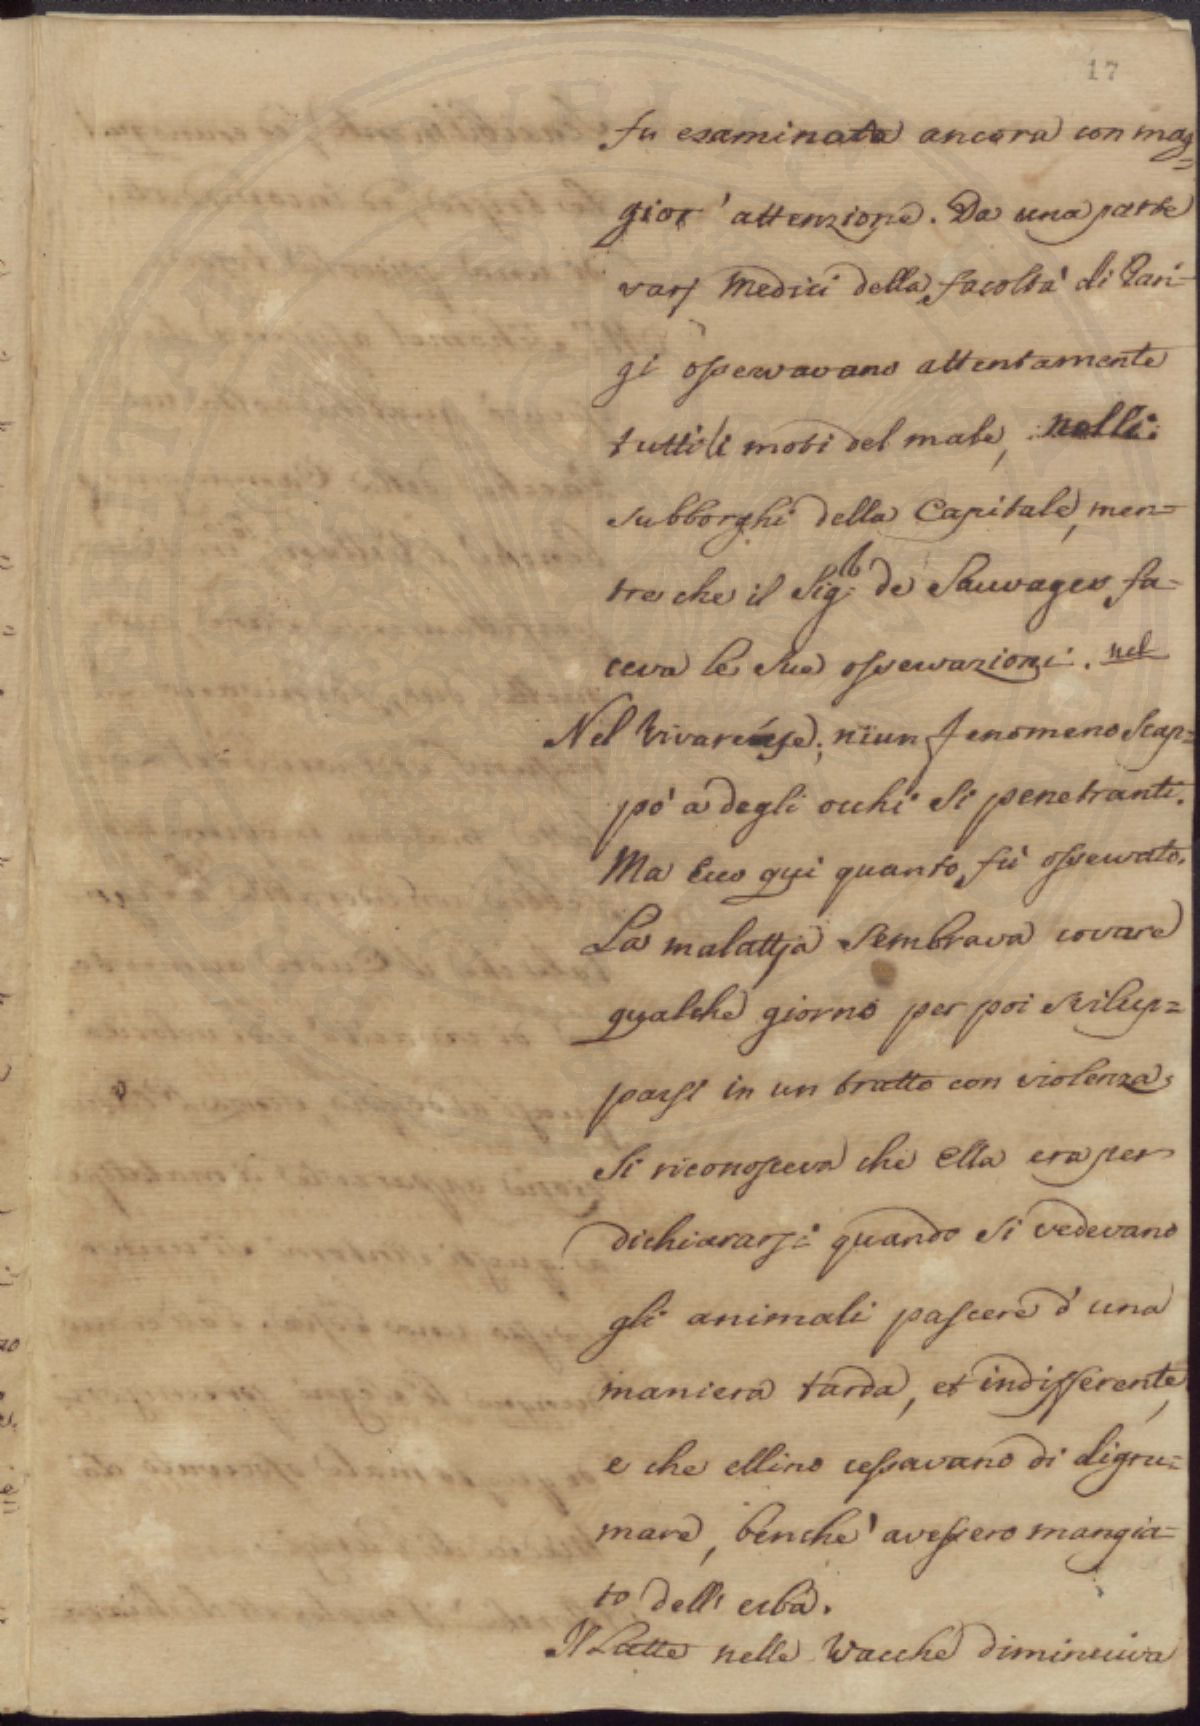 17
fu esaminata ancora con mag=
gior' attenzione. Da una parte
varj Medici della facoltà di Pari=
gi osservavano attentamente
tutti li moti del male, nelli
subborghi della Capitale, men=
tre che il Sig.r de Sauvages fa=
ceva le sue osservazioni. nel
Nel Vivarese; niun fenomeno scap=
pò a degli occhi si penetranti.
Ma Ecco qui quanto fù osservato.
La malattja sembrava covare
qualche giorno per poi svilup=
parsi in un tratto con violenza,
Si riconosceva che Ella era per
dichiararsi quando si vedevano
gli animali pascere d'una
maniera tarda, et indifferente,
e che ellino cessavano di digru=
mare, benche' avessero mangia=
to dell' erba.
Il Latte nelle Wacche diminuiva